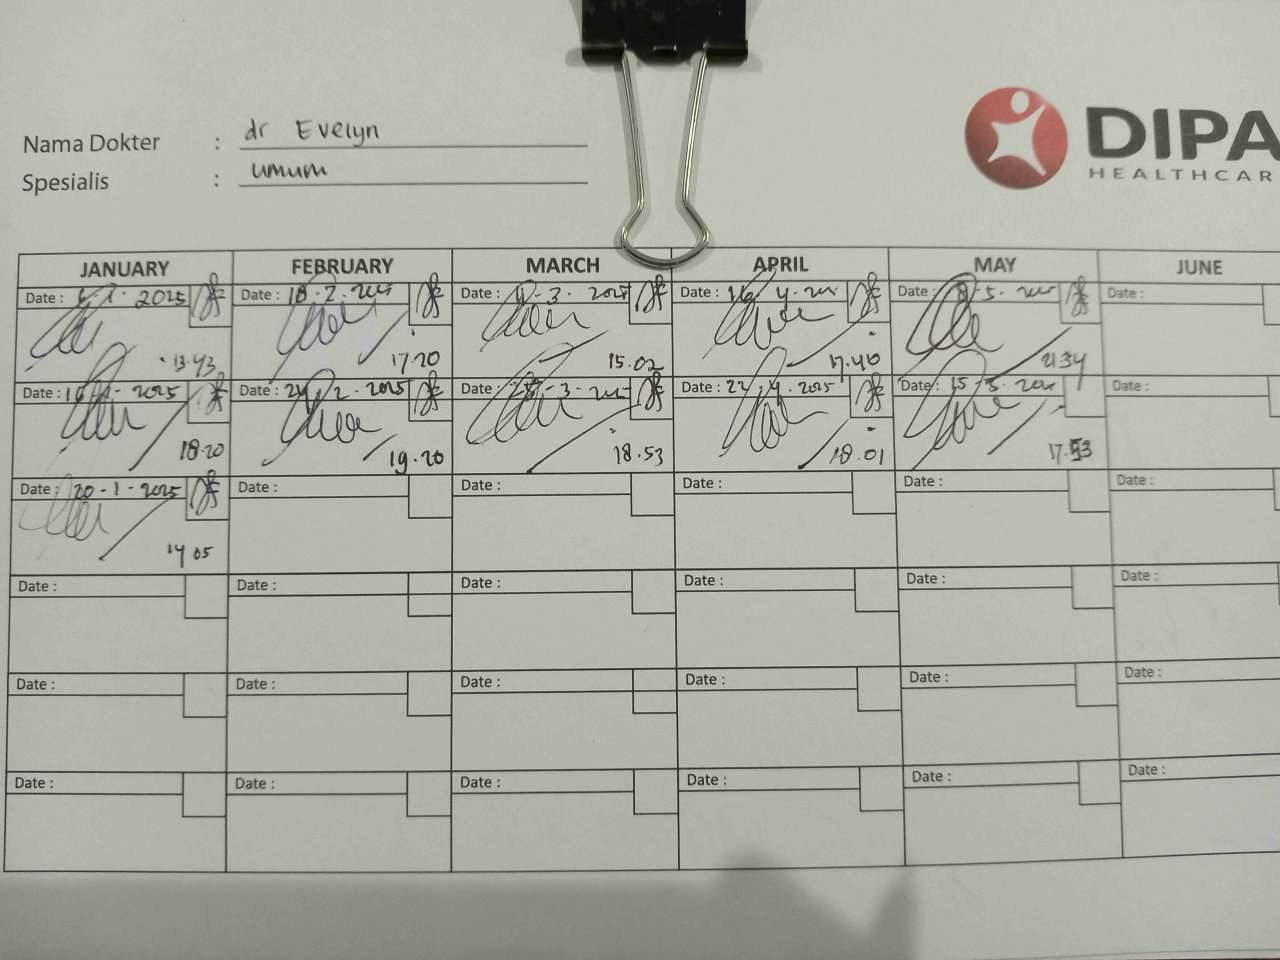 Nama Dokter : dr Evelyn
Spesialis : umum
DIPA
HEALTHCAR
JANUARY FEBRUARY MARCH APRIL MAY JUNE
Date : 2025 Date : 18-2- Date : -3-2025 Date : 16-4- Date : -5- Date :
13.43 17.20 15.02 17.40 21.34
Date : 2025 Date : 24-2-2025 Date : -3- Date : 22-4-2025 Date : 15-5- Date :
18.20 19.20 18.53 18.01 17.53
Date : 20-1-2025 Date : Date : Date : Date : Date :
14 05
Date : Date : Date : Date : Date : Date :
Date : Date : Date : Date : Date : Date :
Date : Date : Date : Date : Date : Date :